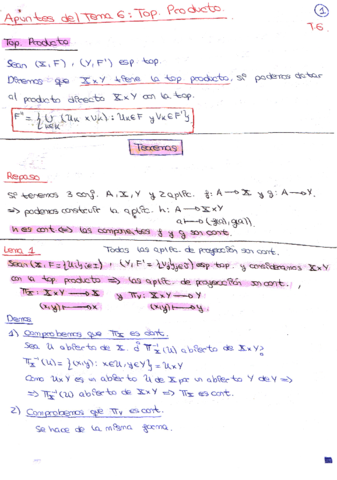 Apuntes del Tema 6: Top. Producto.
1
T.6
Top. Producto
Sean (X, F), (Y, F') esp. top.
Diremos que X×Y tiene la top producto, si podemos dotar
al producto directo X×Y con la top.
F'' = {∪ (Uk × Vk) : Uk∈F y Vk∈F'}
k∈K
Teoremas
Repaso
Si tenemos 3 conj. A, X, Y y 2 aplic. f: A→X y g: A→Y.
⇒ podemos construir la aplic. h: A→X×Y
a↦(f(a), g(a))
h es cont ⇔ las componentes f y g son cont.
Lema 1
Todas las aplic de proyección son cont.
Sean (X, F={Ui}i∈I), (Y, F'={Vj}j∈J) esp top. y consideramos X×Y
con la top producto ⇒ las aplic de proyección son cont.,
πX: X×Y→X y πY: X×Y→Y
(x,y)↦x (x,y)↦y
Demos
1) Comprobemos que πX es cont.
Sea U abierto de X. ¿ πX⁻¹(U) abierto de X×Y?
πX⁻¹(U) = {(x,y): x∈U, y∈Y} = U×Y
Como U×Y es un abierto U de X por un abierto Y de Y ⇒
⇒ πX⁻¹(U) abierto de X×Y ⇒ πX es cont.
2) Comprobemos que πY es cont.
Se hace de la misma forma.